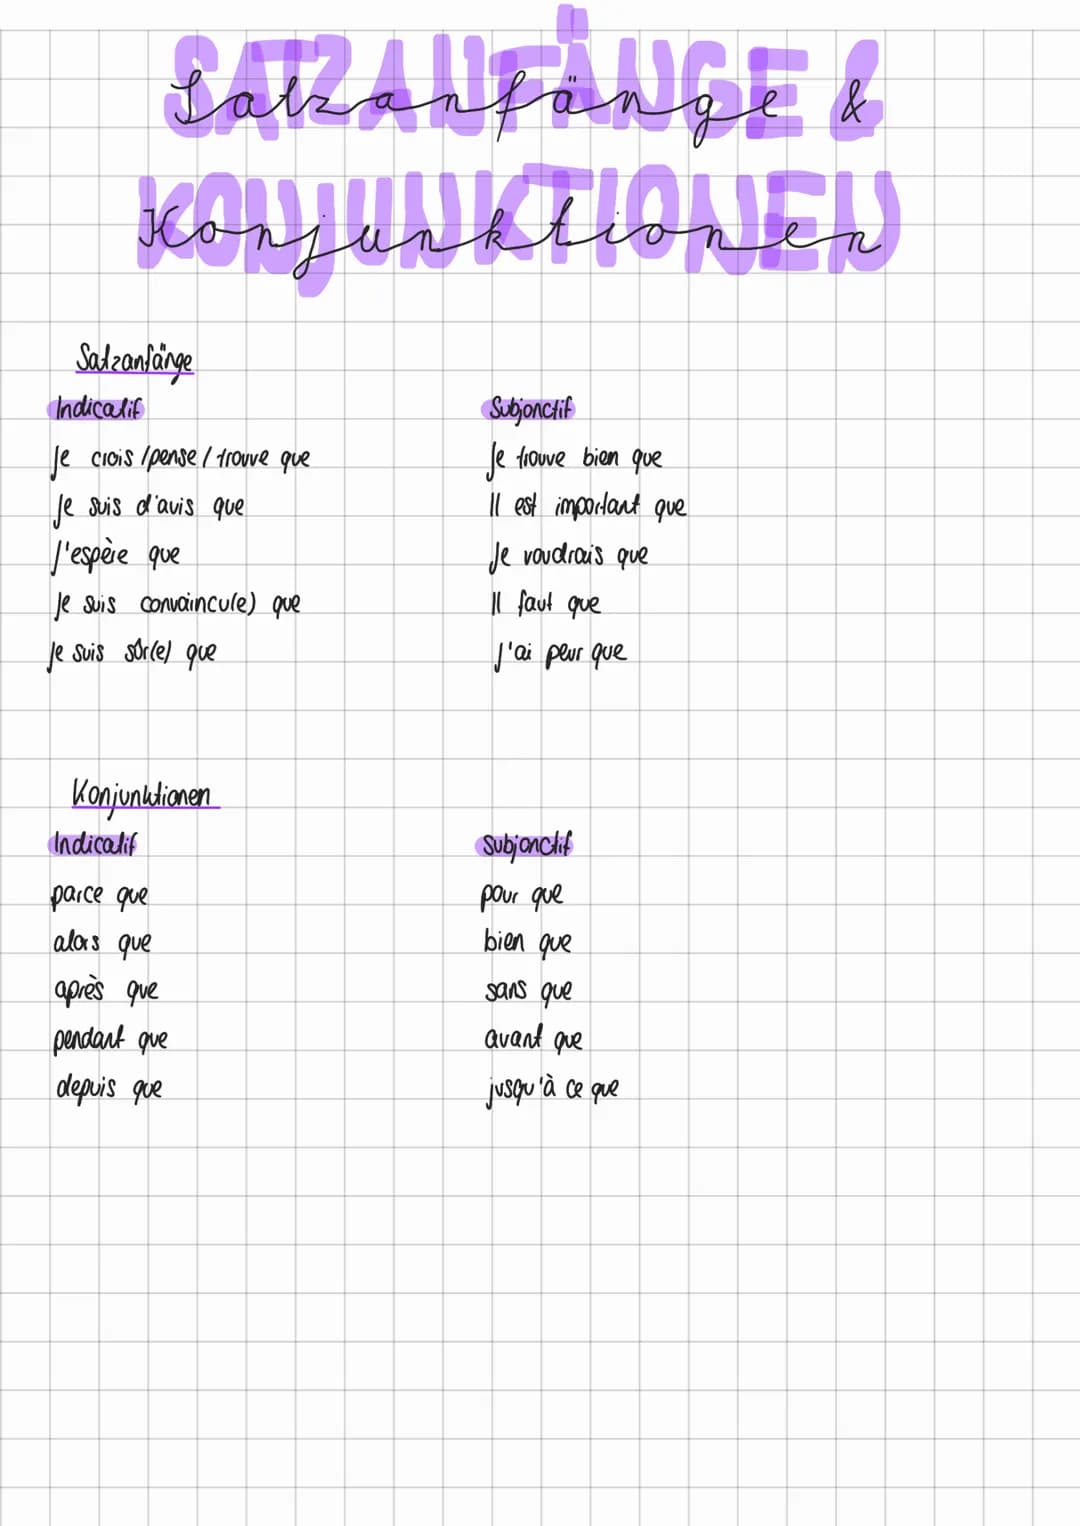 SATZANFÄNGE &
Satzanfänge &
KONJUNKTIONEN
Konjunktionen
Satzanfänge
Indicatif
Je crois / pense / trouve que
Je suis d'avis que
J'espère que
Je suis convaincu(e) que
Je suis sûr(e) que
Subjonctif
Je trouve bien que
Il est important que
Je voudrais que
Il faut que
J'ai peur que
Konjunktionen
Indicatif
parce que
alors que
après que
pendant que
depuis que
Subjonctif
pour que
bien que
sans que
avant que
jusqu'à ce que